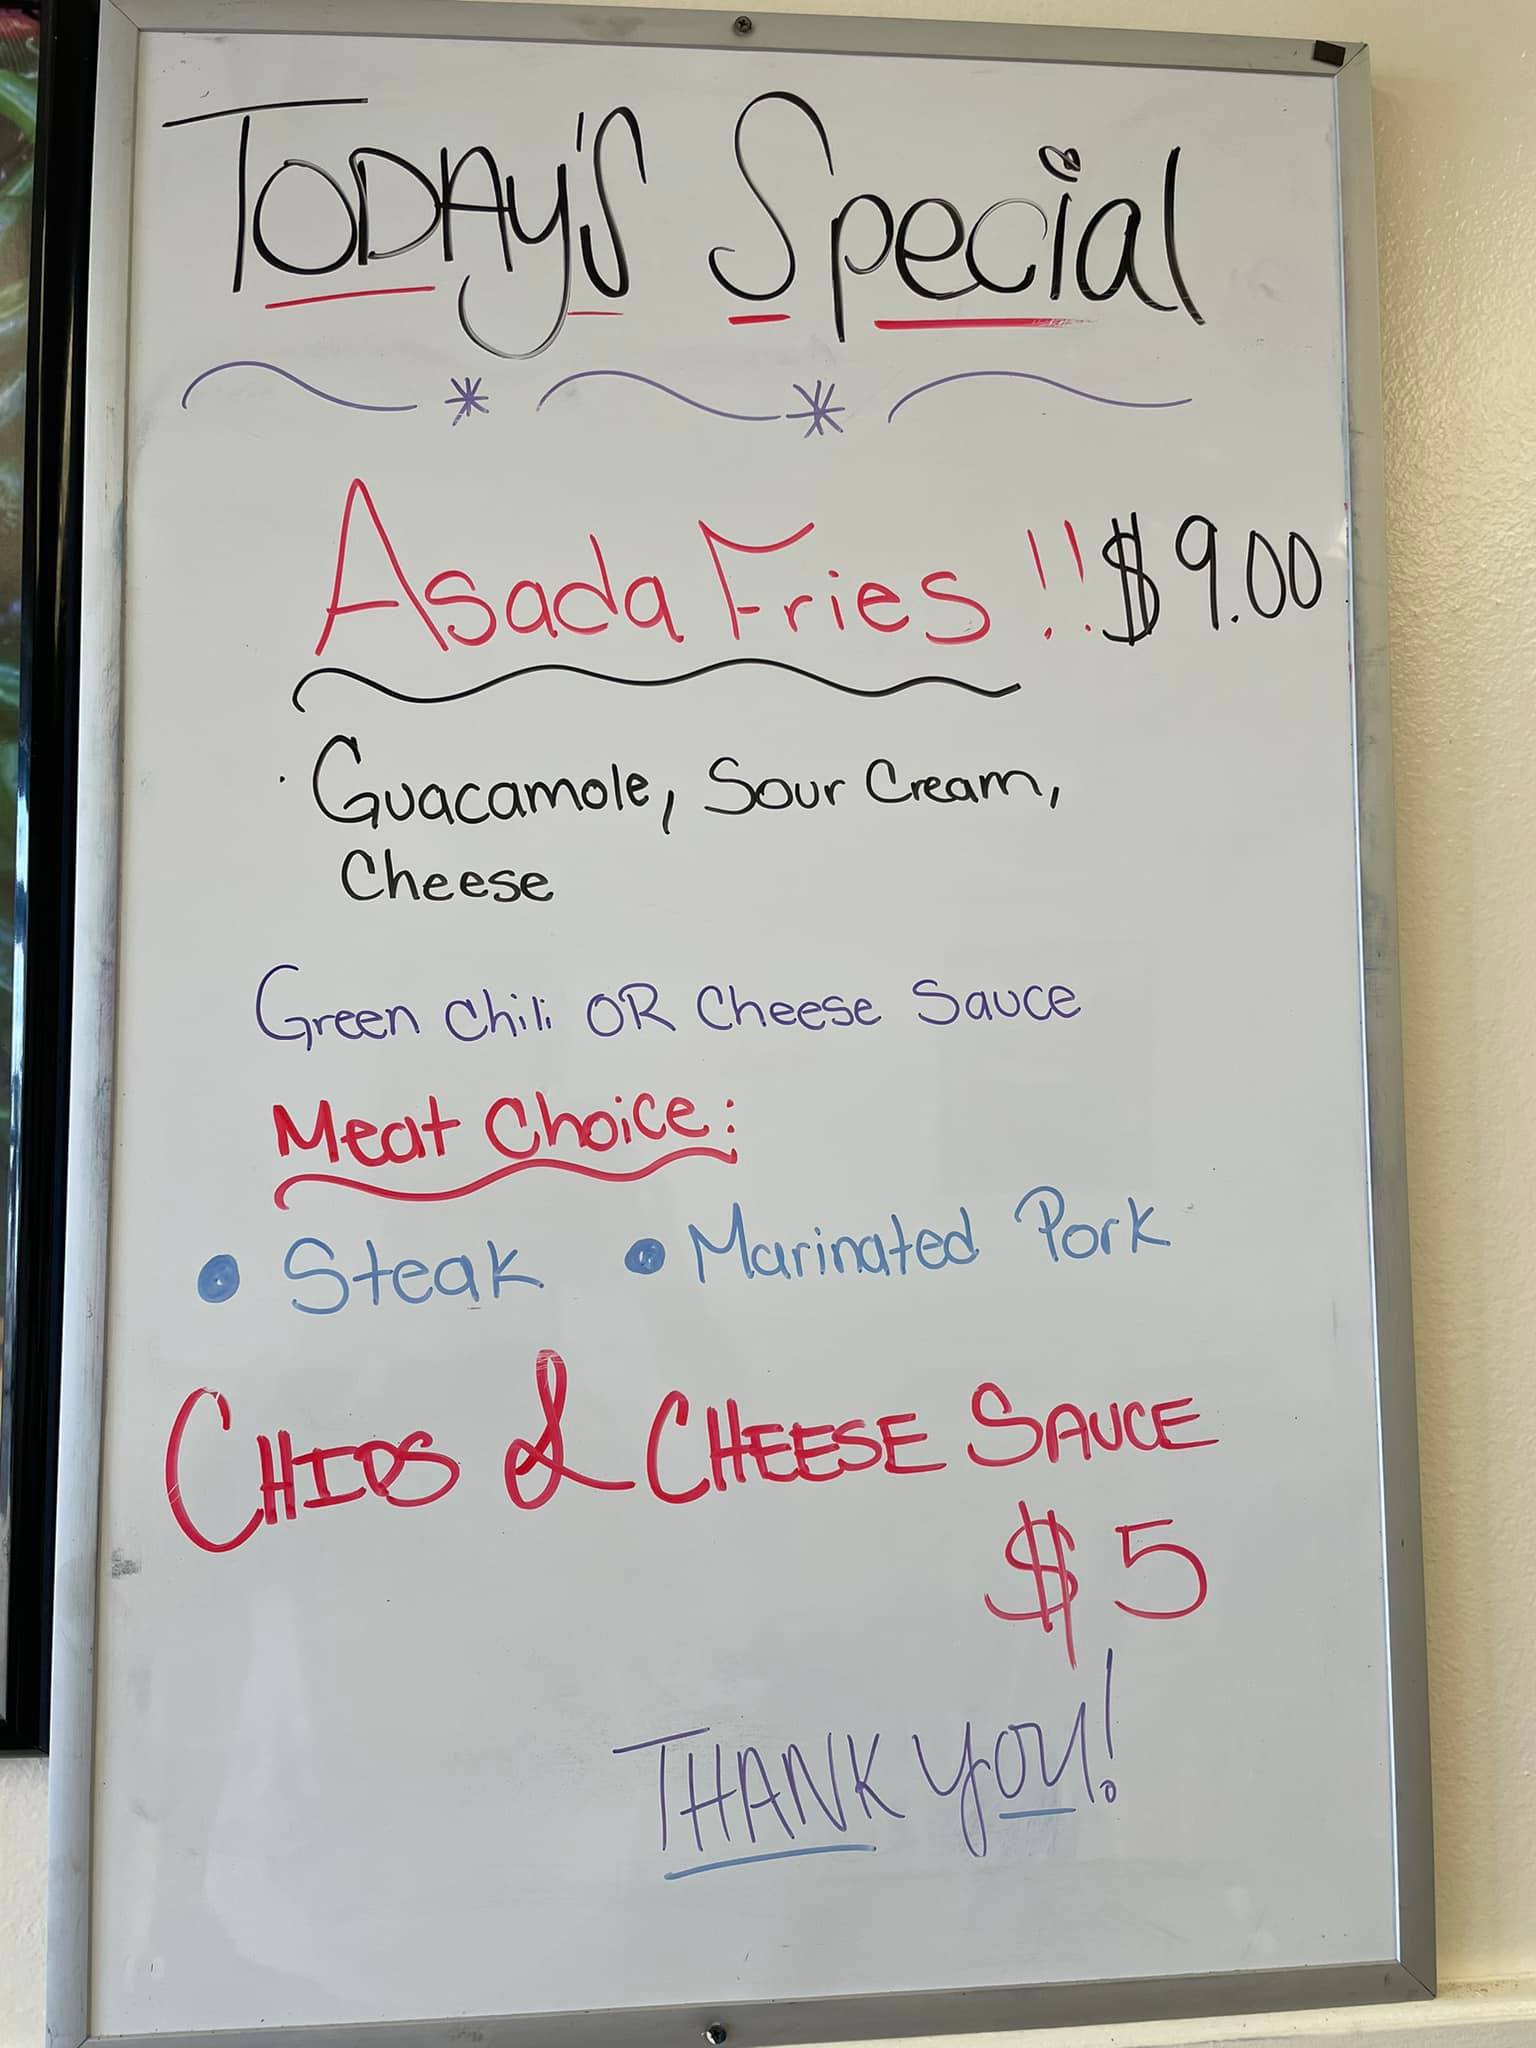 Today's Special
Asada Fries !! $9.00
Guacamole, Sour Cream,
Cheese
Green Chili OR Cheese Sauce
Meat Choice:
• Steak • Marinated Pork
CHIPS & CHEESE SAUCE
$5
THANK YOU!